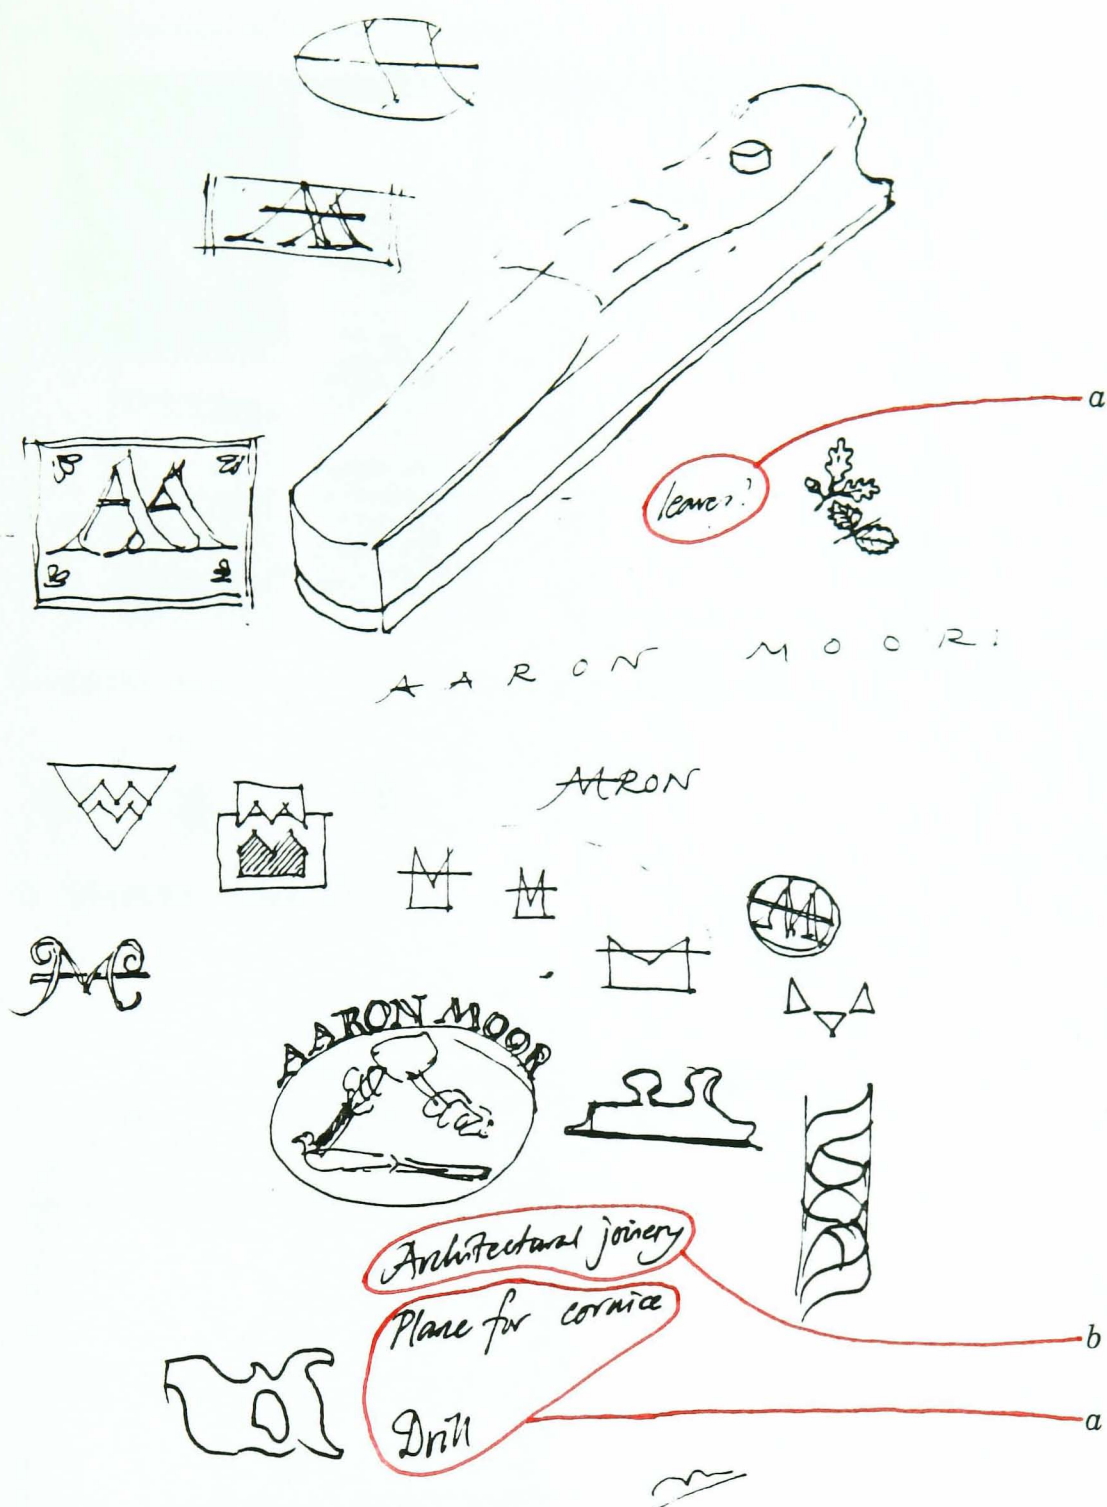 AA
a
leaves?
AARON MOOR
AARON
AARON MOOR
Architectural joinery
b
Plane for cornice
Drill
a